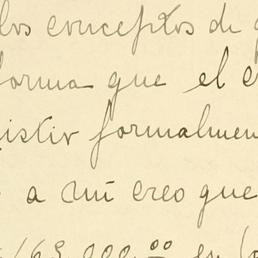 los conceptos de
forma que el
istir formalmen
a mí creo que
163.000.00 en